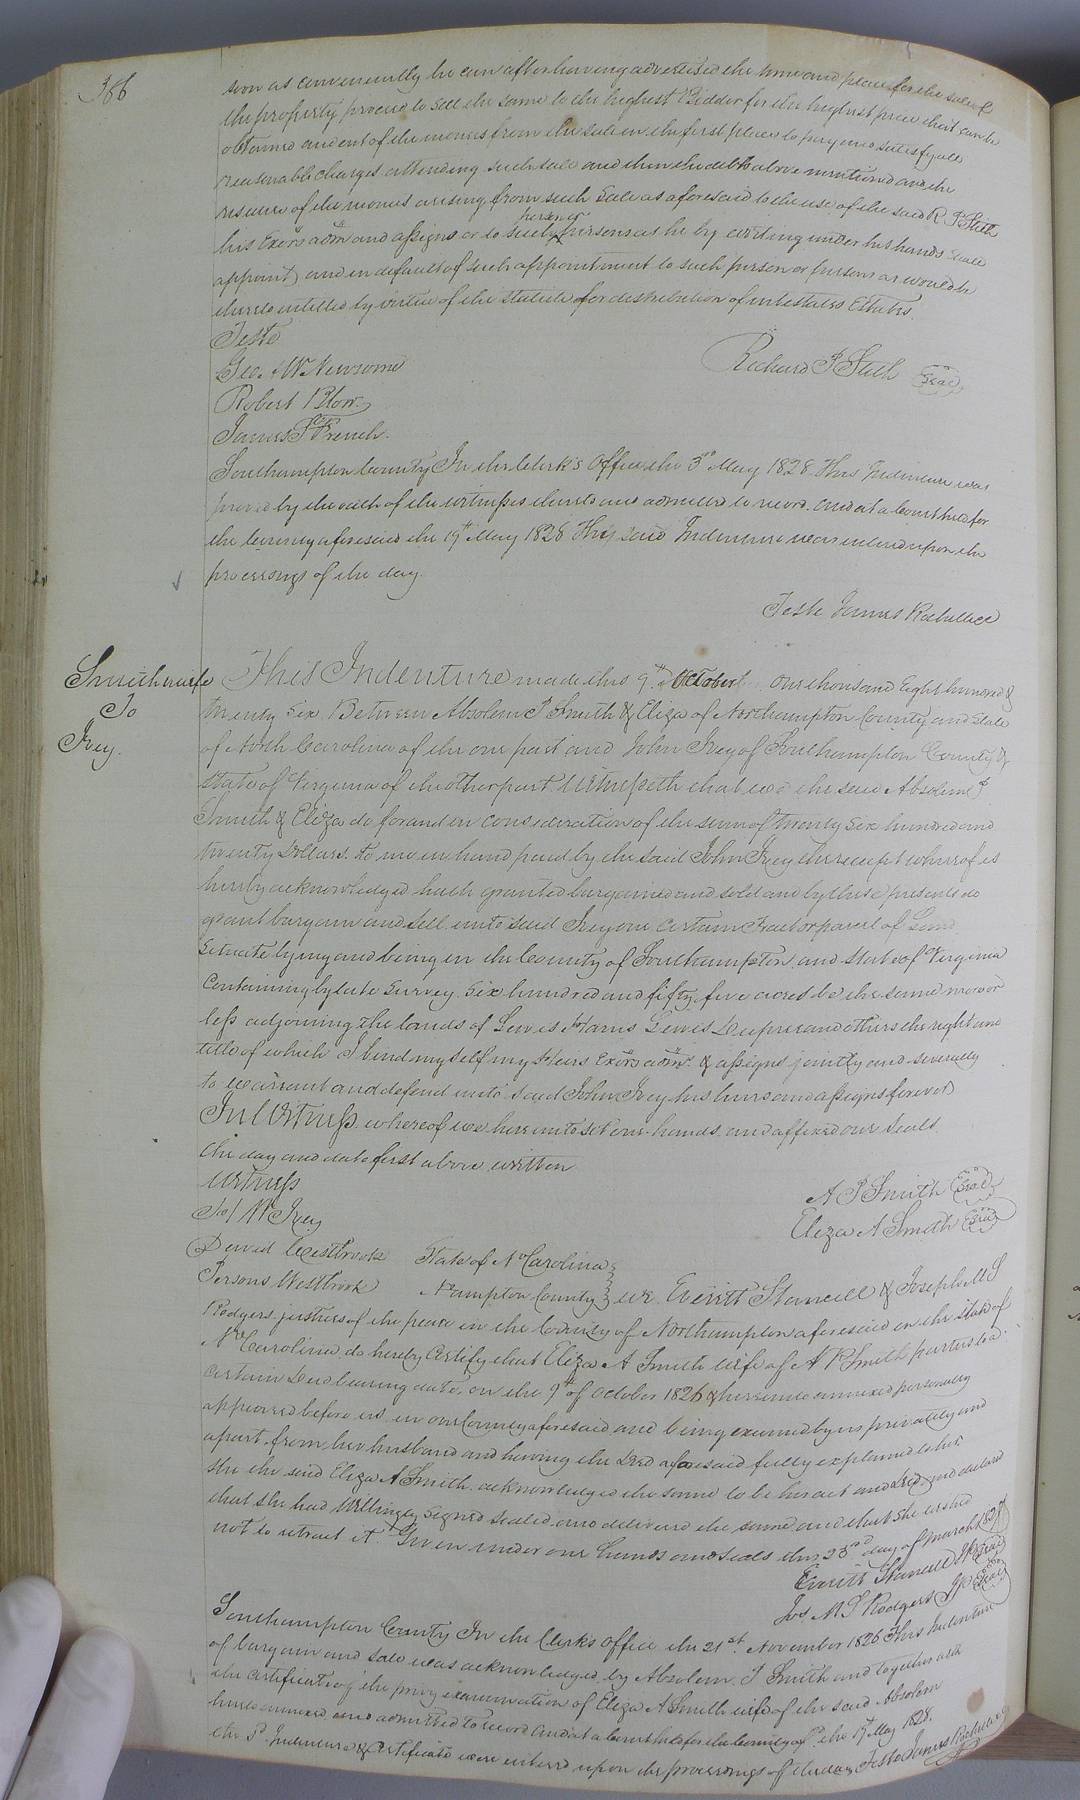 386
soon as conveniently he can after having advertised the time and place for the sale of
the property proceed to sell the same to the highest Bidder for the highest price that can be
obtained and out of the monies from the sale in the first place to pay and satisfy all
reasonable charges attending such sale and then the debt above mentioned and the
residue of the monies arising from such Sale as aforesaid to the use of the said R P Stith
person or
his Exors admr and assigns or to such persons as he by writing under his hands shall
appoint, and in default of such appointment to such person or persons as would be
thereto intitled by virtue of the statute for distribution of intestates Estates.
Teste
Geo. W Newsome
Richard P Stith Seal
Robert Blow.
James S French.
Southampton County In the Clerk's Office the 3rd May 1828 This Indenture was
proved by the oath of the witnesses thereto and admitted to record. and at a Court held for
the County aforesaid the 19th May 1828 This said Indenture was entered upon the
proceedings of the day.
Teste James Rochelle
Smith & wife
To
Ivey.
This Indenture made this 9th October one thousand Eight hundred &
twenty Six Between Absolem P Smith & Eliza of Northampton County and State
of North Carolina of the one part and John Ivey of Southampton County &
State of Virginia of the other part Witnesseth that we the said Absolem P
Smith & Eliza do for and in consideration of the sum of twenty Six hundred and
twenty Dollars. to me in hand paid by the said John Ivey the receipt whereof is
hereby acknowledged hath granted bargained and sold and by these presents do
grant bargain and sell unto said Ivey one certain Tract or parcel of Land
Situate lying and being in the County of Southampton and State of Virginia
Containing by late Survey Six hundred and fifty five acres be the same more or
less adjoining the lands of Lewis Harris Lewis Dupree and others the right and
title of which I bind myself my Heirs Exors admrs & assigns jointly and severally
to warrant and defend unto said John Ivey his heirs and assigns forever
In Witness whereof we hereunto set our hands and affixed our Seals
the day and date first above written
Witness
A P Smith Seal
W Ivey
Eliza A Smith Seal
David Westbrook State of No Carolina
Persons Westbrook N hampton County we Everitt Stancell & Joseph M S
Rodgers justices of the peace in the County of Northampton aforesaid in the State of
No Carolina, do hereby Certify that Eliza A Smith wife of A P Smith parties to a
certain Deed bearing date, on the 9th of October 1826 & hereunto annexed personally
appeared before us in our County aforesaid and being examined by us privately and
apart from her husband and having the Deed aforesaid fully explained to her
she the said Eliza A Smith. acknowledged the same to be her act and Deed and declared
that she had Willingly Signed sealed and delivered the same and that she wished
not to retract it Given under our hands and seals this 23rd day of March 1827
Everitt Stancell JP Seal
Jos M S Rodgers JP Seal
Southampton County In the Clerk's Office the 21st November 1826 This Indenture
of bargain and sale was acknowledged by Absolem P Smith and together with
the Certificate of the privy examination of Eliza A Smith wife of the said Absolem
hereto annexed and admitted to record and at a Court held for the County afsd the 19 May 1828.
the sd Indenture & Certificate were entered upon the proceedings of the day Teste James Rochelle